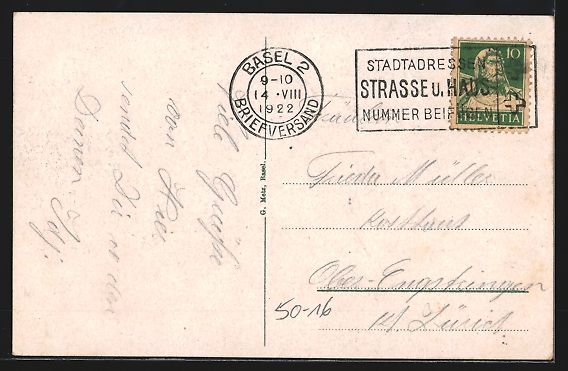 BASEL 2
9-10
14 · VIII
1922
BRIEFVERSAND
STADTADRESSEN
STRASSE u. HAUS-
NUMMER BEIF
10
HELVETIA
Viele Grüsse
von hier
sendet Dir
Deinen
G. Metz, Basel.
Fräulein
Frieda Müller
Posthaus
Ober-Engstringen
Kt. Zürich
50-16